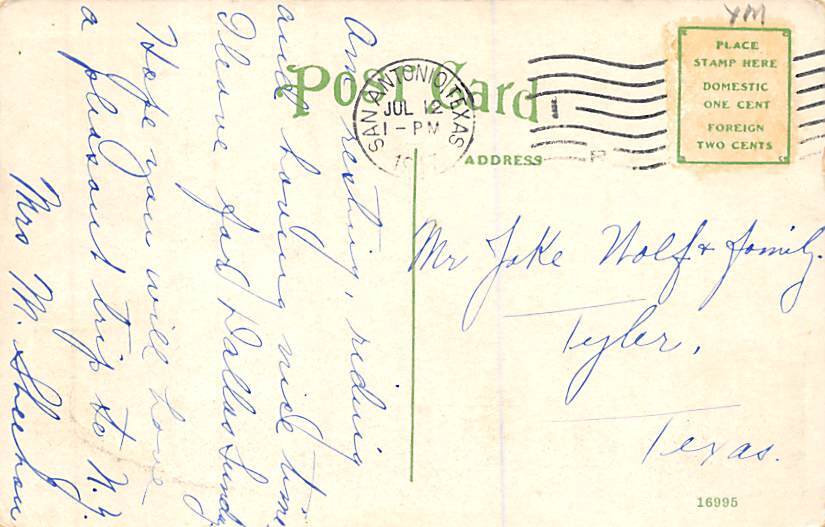 YM
POST CARD
SAN ANTONIO, TEXAS
JUL 12
1-PM
PLACE
STAMP HERE
DOMESTIC
ONE CENT
FOREIGN
TWO CENTS
ADDRESS
Am resting, riding
and having nice time
Leave for Dallas Sunday
Hope you will have
a pleasant trip to N.Y.
Mrs M.
Mr Jake Wolf & family.
Tyler,
Texas.
16995